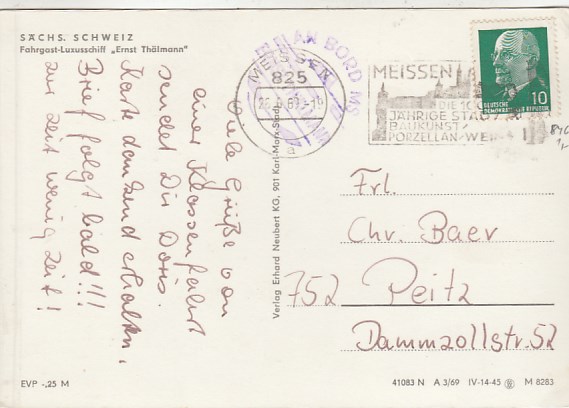 SÄCHS. SCHWEIZ
Fahrgast-Luxusschiff „Ernst Thälmann"
Viele Grüße von
einer Klassenfahrt
sendet Dir Doris.
Karte dankend erhalten,
Brief folgt bald!!!
zur Zeit wenig Zeit!
EVP -,25 M
Verlag Erhard Neubert KG, 901 Karl-Marx-Stadt
AN BORD MS
MEISSEN
825
a
MEISSEN
DIE
JÄHRIGE STADT
BAUKUNST
PORZELLAN·WEIN
DEUTSCHE
DEMOKRATISCHE REPUBLIK
10
Frl.
Chr. Baer
752 Peitz
Dammzollstr. 52
41083 N A 3/69 IV-14-45 M 8283